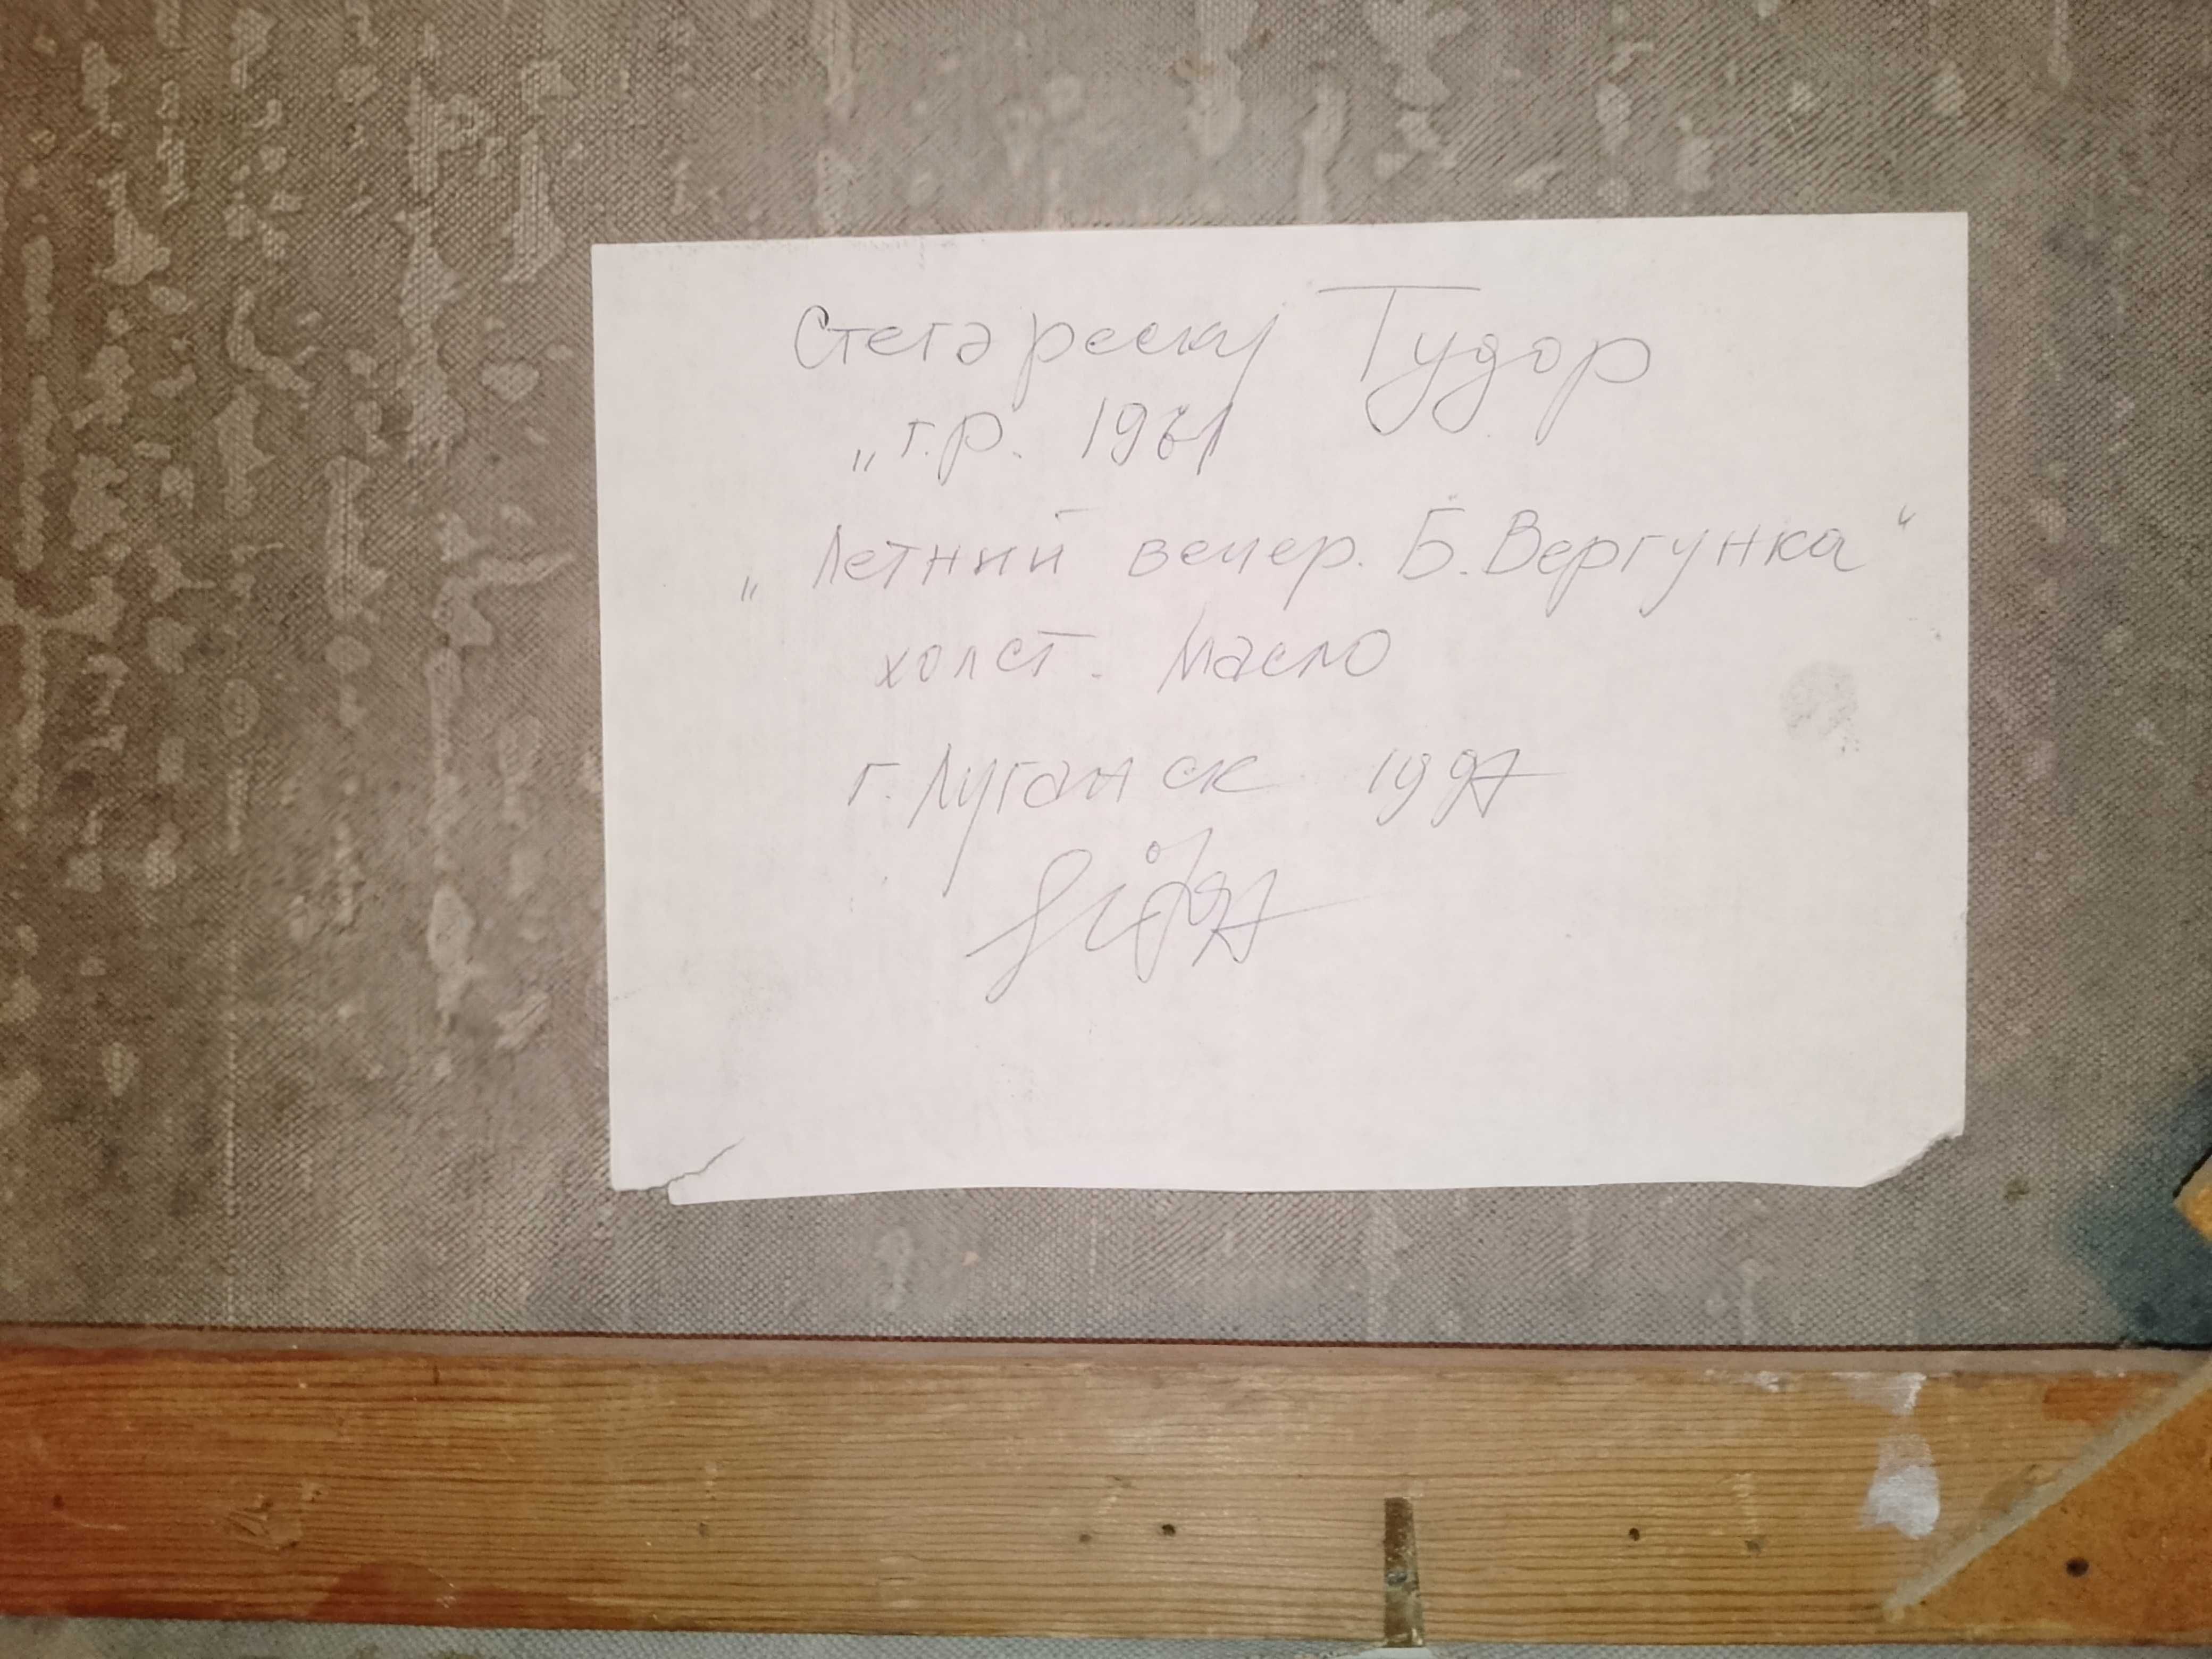 Стегареску Тудор
„г.р. 1961
„Летний вечер. Б. Вергунка“
холст. Масло
г. Луганск 1997